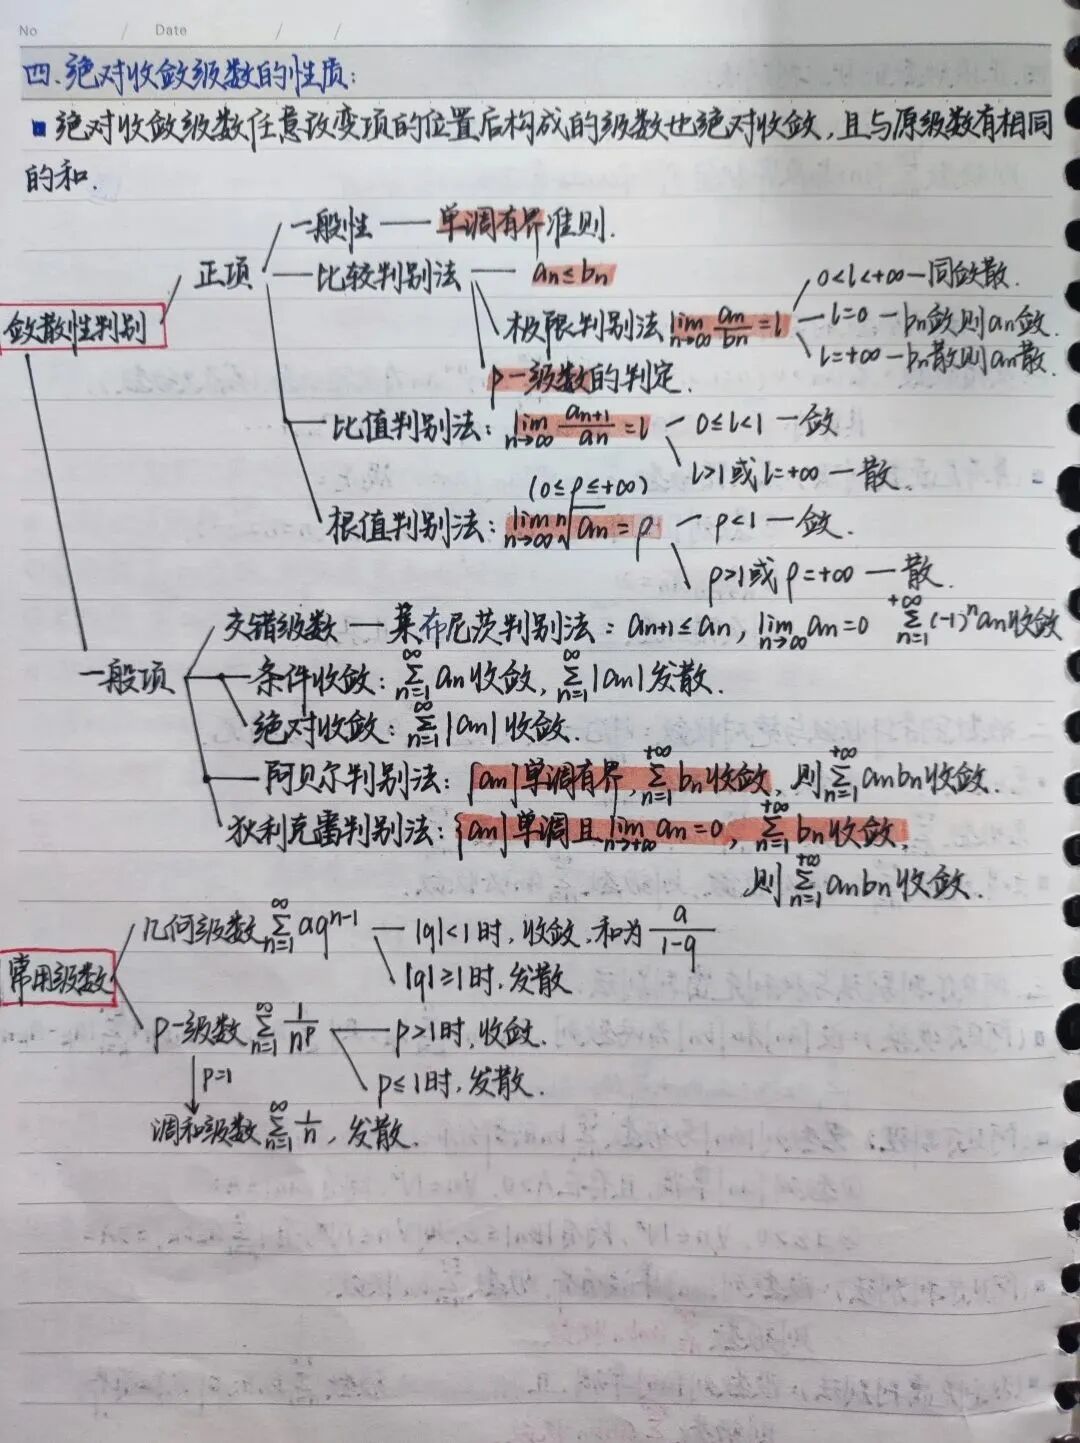 No / Date / /
四.绝对收敛级数的性质:
■ 绝对收敛级数任意改变项的位置后构成的级数也绝对收敛,且与原级数有相同
的和.
敛散性判别
正项
一般性 — 单调有界准则.
比较判别法 — an≤bn
极限判别法 lim n→∞ an/bn = l
0<l<+∞ — 同敛散.
l=0 — bn敛则an敛.
l=+∞ — bn散则an散.
p—级数的判定.
比值判别法: lim n→∞ an+1/an = l
0≤l<1 — 敛
l>1或l=+∞ — 散.
(0≤ρ≤+∞)
根值判别法: lim n→∞ ⁿ√an = ρ
ρ<1 — 敛.
ρ>1或ρ=+∞ — 散.
一般项
交错级数 — 莱布尼茨判别法: an+1≤an, lim n→∞ an=0 +∞∑n=1 (-1)ⁿan收敛
条件收敛: ∞∑n=1 an收敛, ∞∑n=1 |an|发散.
绝对收敛: ∞∑n=1 |an|收敛.
阿贝尔判别法: {an}单调有界, +∞∑n=1 bn收敛, 则+∞∑n=1 anbn收敛.
狄利克雷判别法: {an}单调且lim n→+∞ an=0, +∞∑n=1 bn收敛,
则+∞∑n=1 anbn收敛.
常用级数
几何级数 ∞∑n=1 aqⁿ⁻¹
|q|<1时,收敛,和为 a/1-q
|q|≥1时,发散
p—级数 ∞∑n=1 1/nᵖ
p>1时,收敛.
p≤1时,发散.
p=1
调和级数 ∞∑n=1 1/n, 发散.